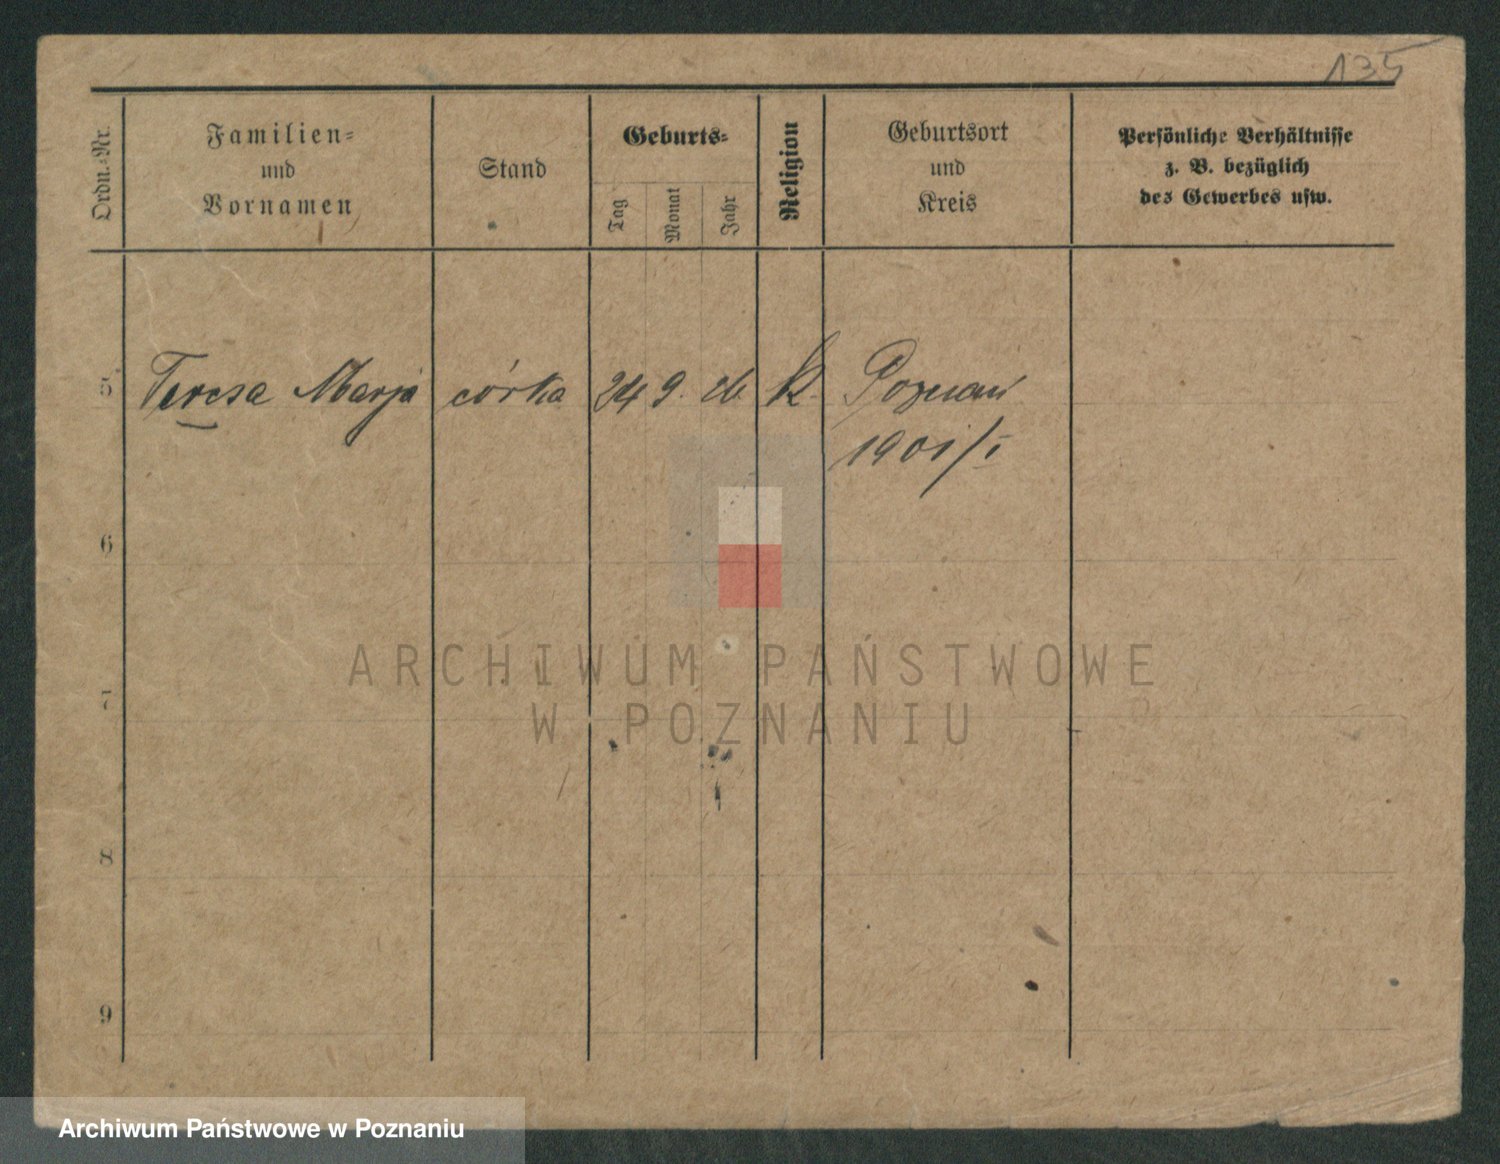 135
Ordn.-Nr.
Familien-
und
Vornamen
Stand
Geburts-
Tag
Monat
Jahr
Religion
Geburtsort
und
Kreis
Persönliche Verhältnisse
z. B. bezüglich
des Gewerbes usw.
5 Teresa Marja córka 24 9. 26. k. Poznań
1901/I
6
7
8
9
ARCHIWUM PAŃSTWOWE
W POZNANIU
Archiwum Państwowe w Poznaniu